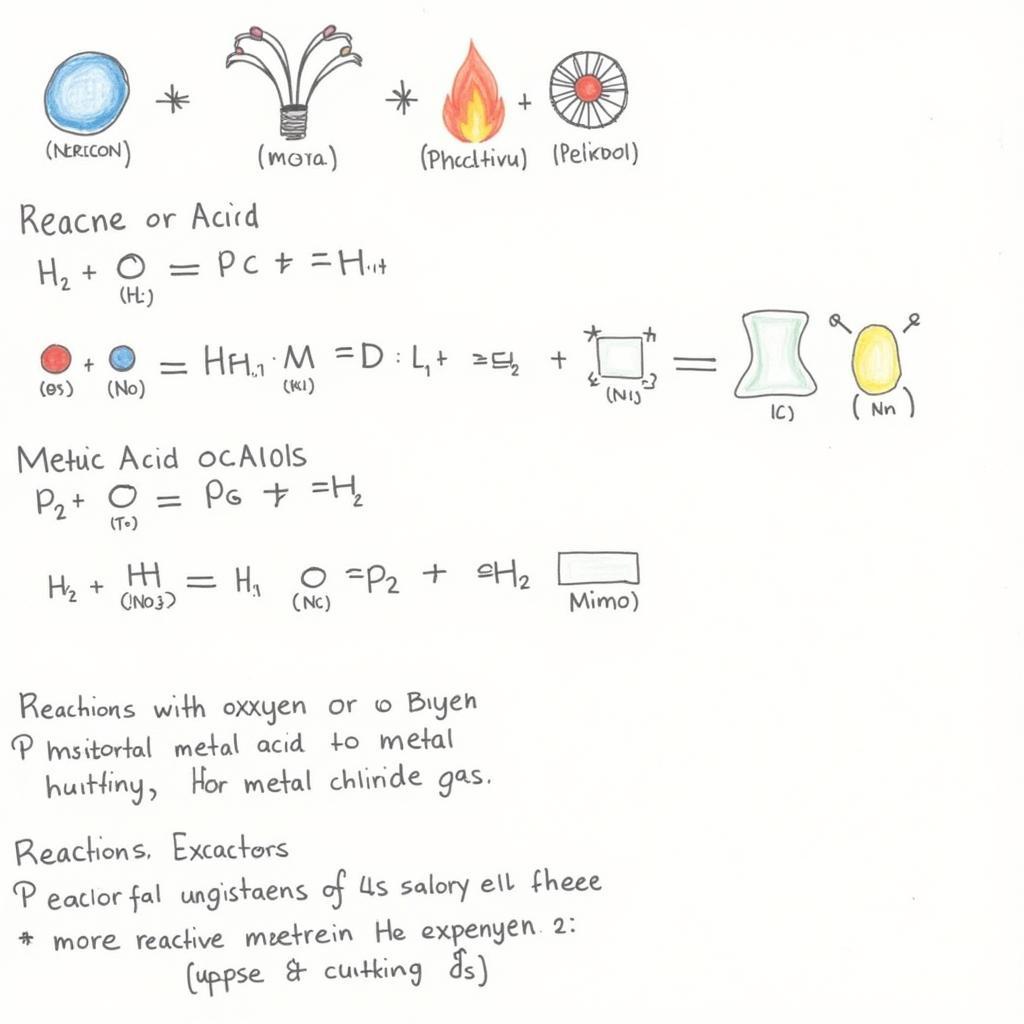 (NERICON) (MOTA) (Phccltivu) (Pelkbol)
Reacne or Acird
H₂ + O = PC + = H
(H:)
+ = HH · M = D : L₁+ +
(es) (No) (KI) (NI) (C) (Nn)
Metuic Acid ocAlols
P₂ + O = PG + =H₂
(To)
H₂ + = H₁ O =P₂ + H₂
(NO3) (NC) Mimo)
Reachions with oxxyen or o Biyen
P msitortal metal acid to metal
huitfiny, Hor metal chlinide gas.
Reactions. Excactors
P eaclor fal ungistaens of 4s salory ell fheee
* more reactive meetrein He expenyen 2:
(uppse & cuitking ds)